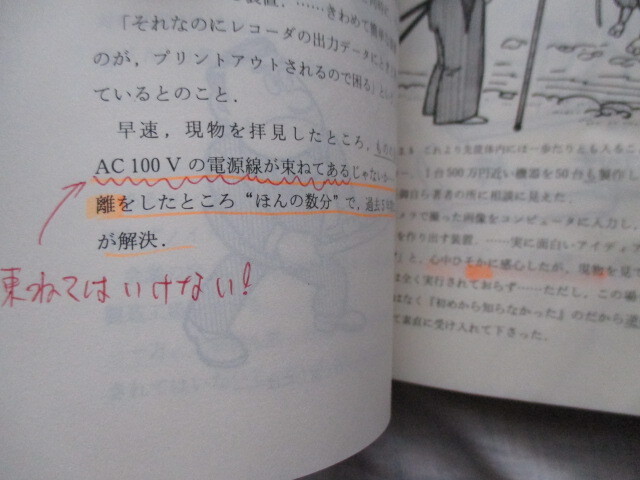 「それなのにレコーダの出力データにときど
のが，プリントアウトされるので困る」とい
ているとのこと．
早速，現物を拝見したところ，
AC 100 V の電源線が束ねてあるじゃないか
離をしたところ“ほんの数分”で，過去
が解決．
東ねてはいけない!
これより先度体内には一歩たりとも入るこ
1台500万円近い機器を50台も製作し
御自ら著者の所に相談に見えた．
メラで撮った画像をコンピュータに入力し，
を作り出す装置．……実に面白いアイディア
と，心中ひそかに感心したが，現物を見て
は全く実行されておらず……ただし，この場
はなく『初めから知らなかった』のだから
て素直に受け入れて下さった．